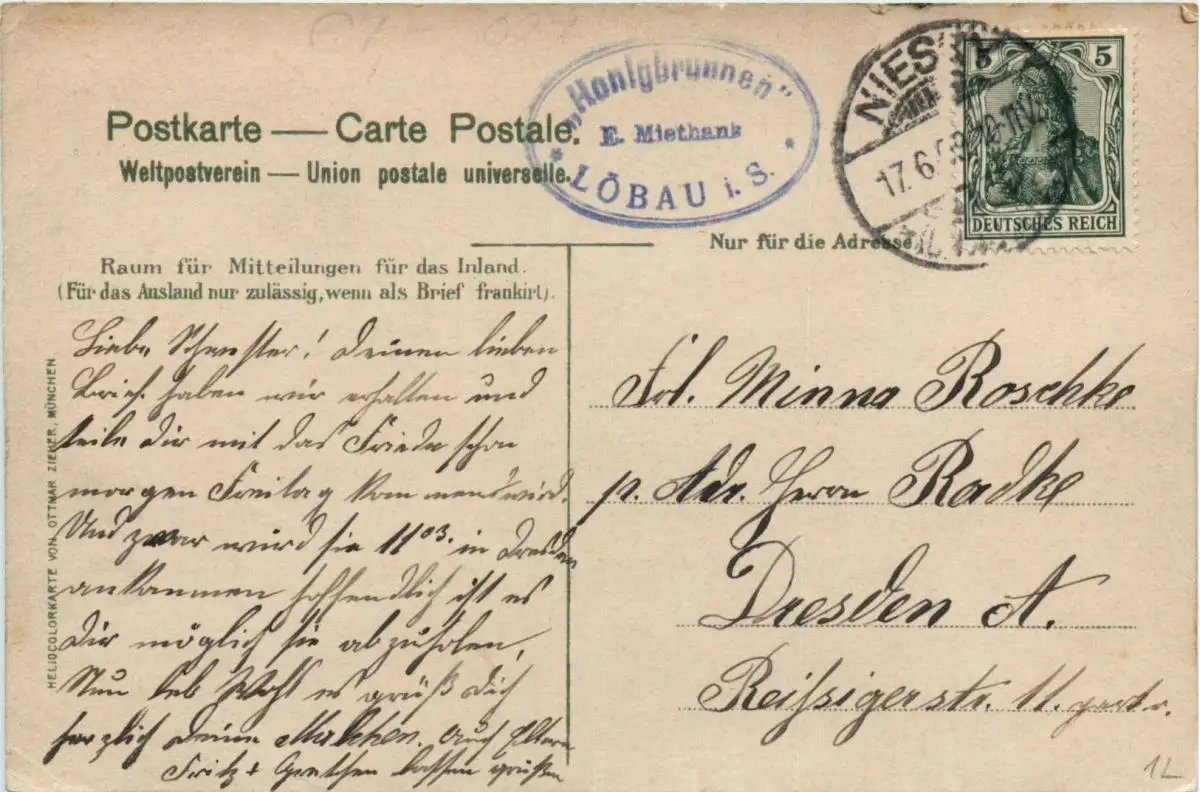 „Honigbrunnen"
E. Miethank
LÖBAU i. S.
NIES
17.6.
5 5
DEUTSCHES REICH
Postkarte — Carte Postale.
Weltpostverein — Union postale universelle.
Nur für die Adresse
Raum für Mitteilungen für das Inland.
(Für das Ausland nur zulässig, wenn als Brief frankirt).
Liebe Schwester! Deinen lieben
Brief haben wir erhalten und
teile Dir mit das Frieda schon
morgen Freitag kommen wird.
Und zwar wird sie 11 03. in Dresden
ankommen hoffendlich ist es
Dir möglich sie abzuholen,
Nun leb Wohl es grüß Dich
herzlich Deine Malchen. Auch Eltern
Fritz + Grethen lassen grüßen
Frl. Minna Roschke
p. Adr. Herrn Radke
Dresden A.
Reißigerstr. 11. part. r.
HELIOCOLORKARTE VON OTTMAR ZIEHER, MÜNCHEN
12